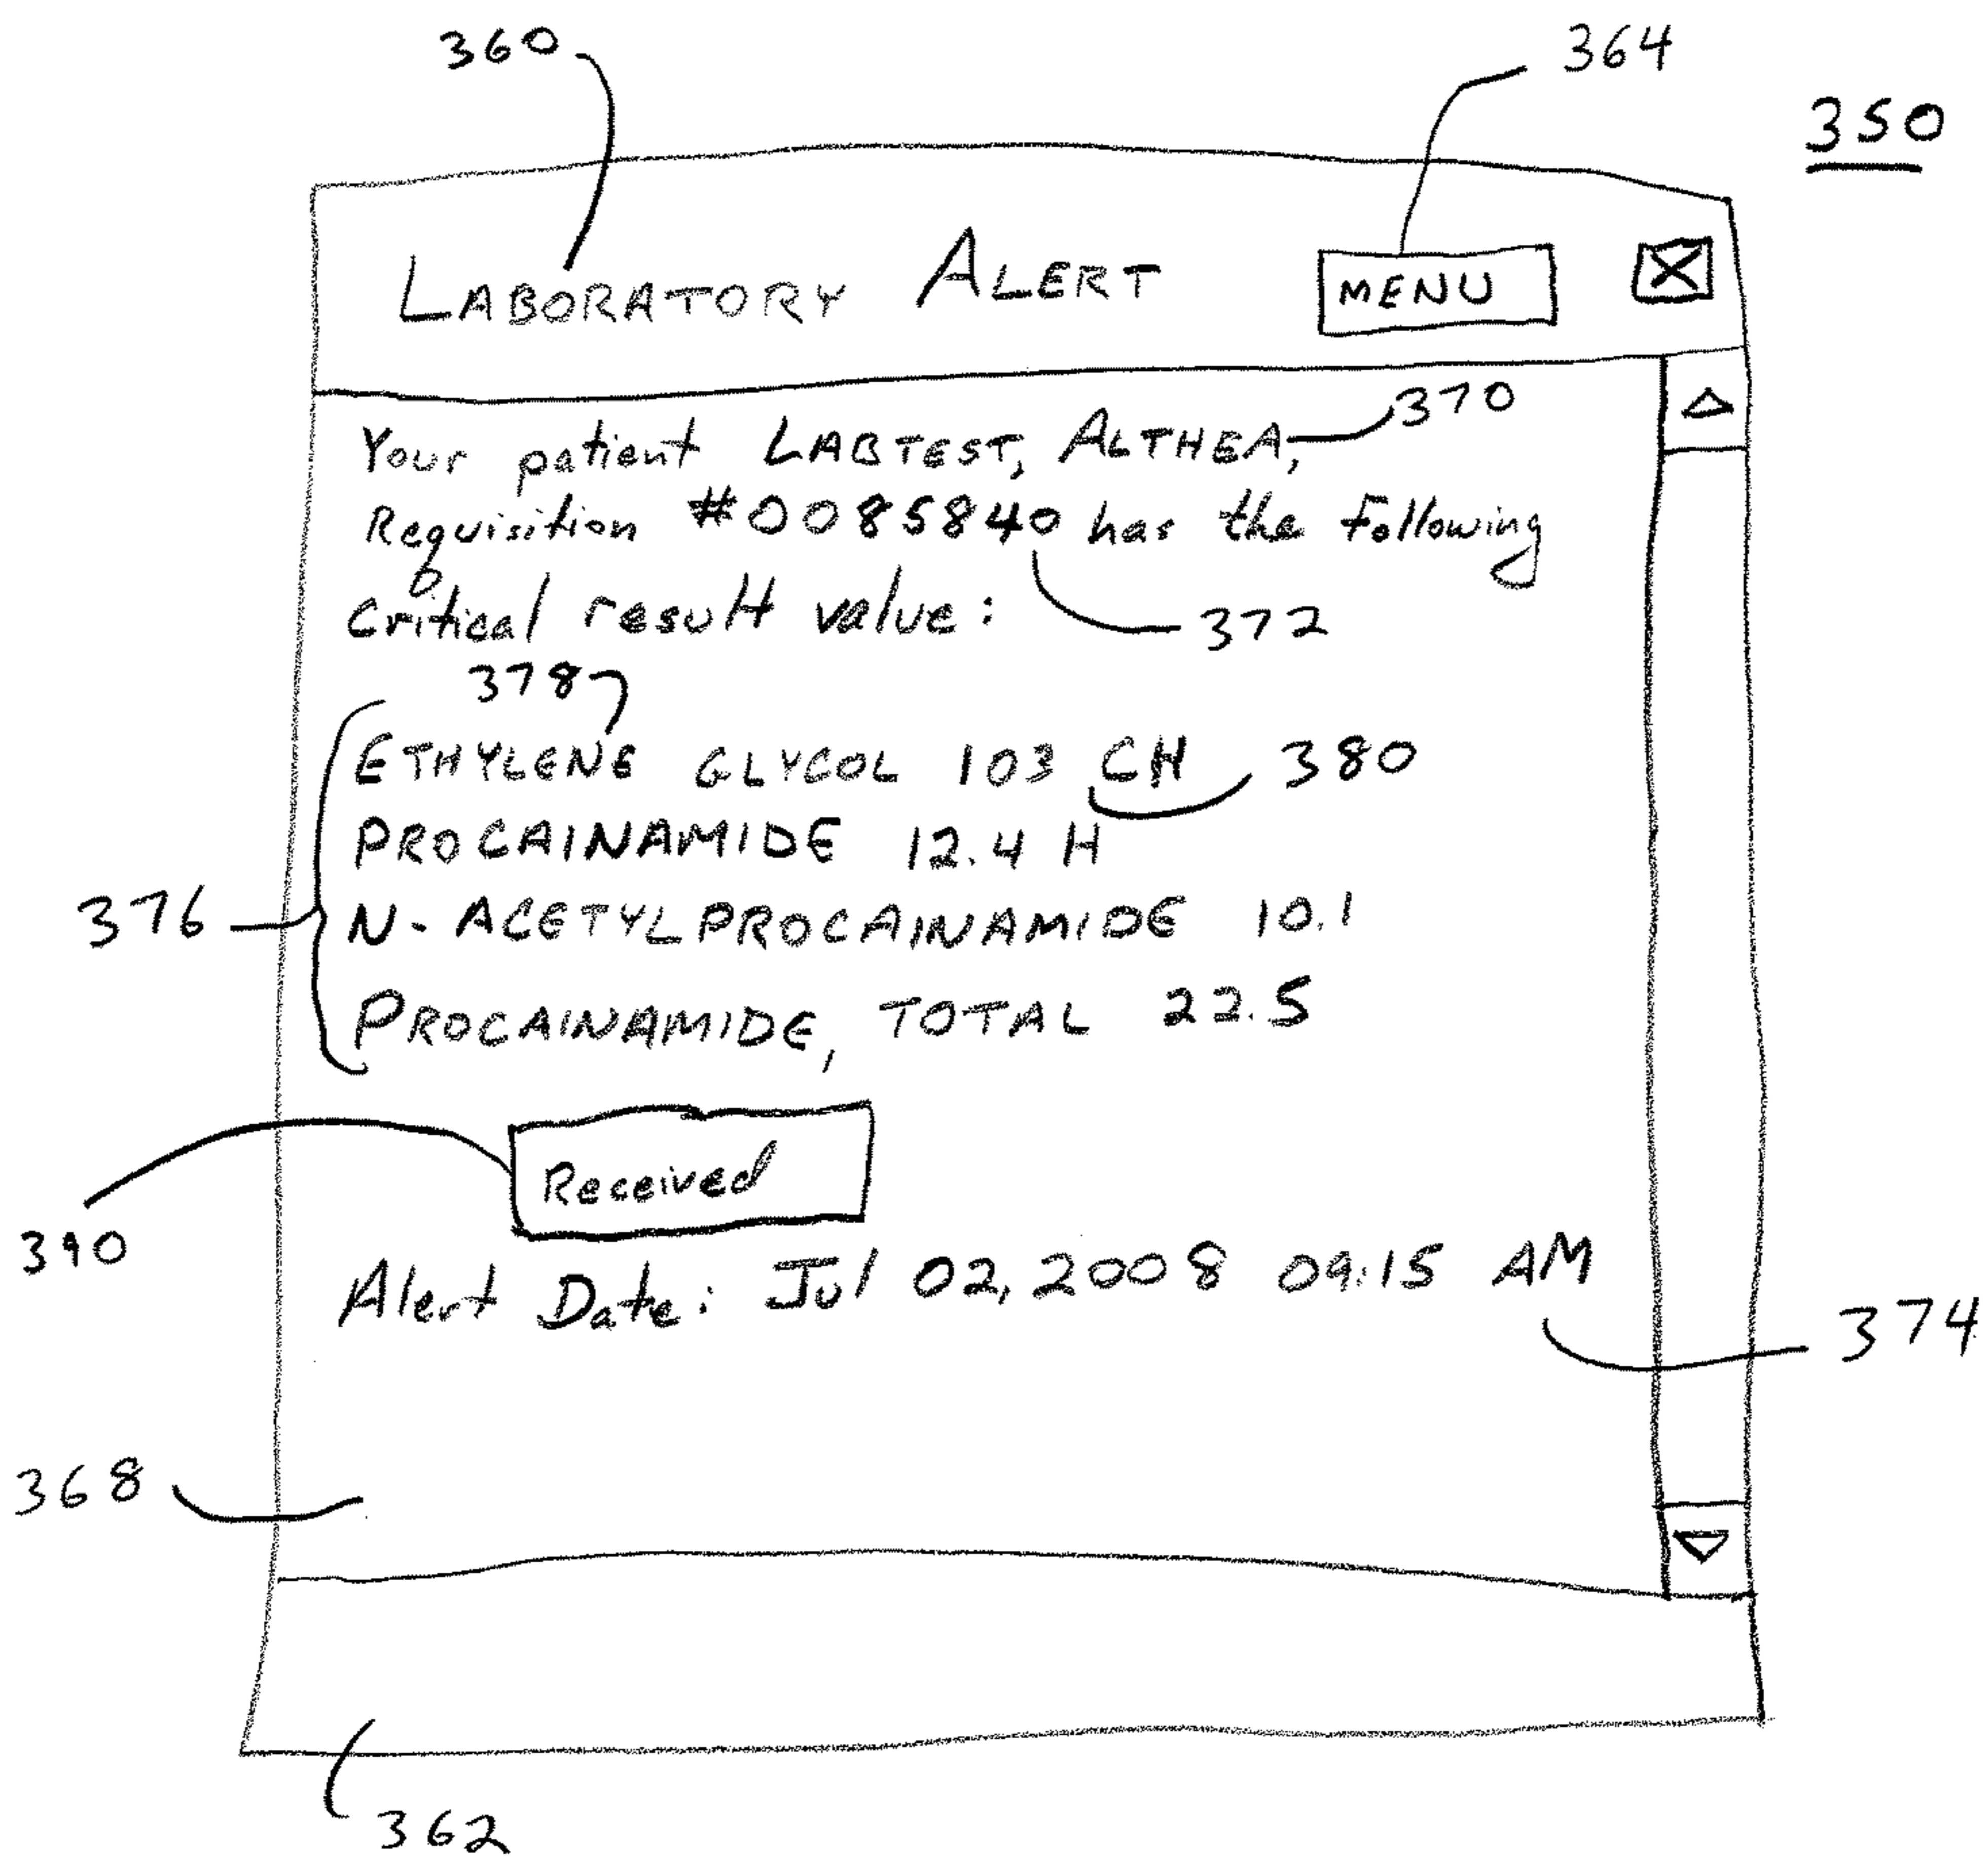 360
364
350
LABORATORY ALERT MENU X
370
Your patient LABTEST, ALTHEA,
Requisition #0085840 has the following
Critical result value:
372
378
ETHYLENE GLYCOL 103 CH 380
PROCAINAMIDE 12.4 H
376 N-ACETYLPROCAINAMIDE 10.1
PROCAINAMIDE, TOTAL 22.5
Received
390
Alert Date: Jul 02, 2008 09:15 AM
374
368
362